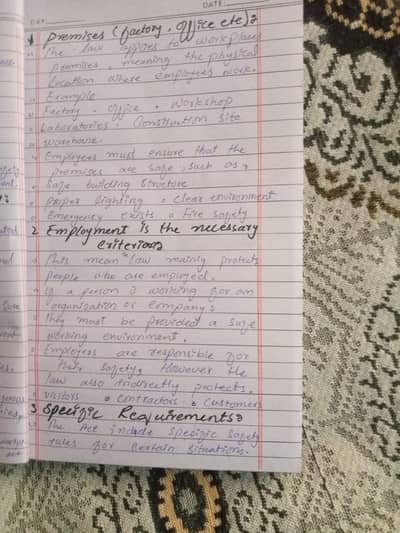 DAY
DATE:
* Premises (factory, office etc):
The law applies to workplaces
premises, meaning the physical
location where employees work.
Example
Factory • Office • Workshop
Laboratories • Construction site
warehouse.
Employers must ensure that the
premises are safe, such as,
Safe building structure
Proper lighting • clear environment
Emergency exists • Fire safety
2 Employment is the necessary
criterion:
This mean law mainly protects
people who are employed.
If a person is working for an
organization or company:
They must be provided a safe
working environment.
Employers are responsible for
their safety, However the
law also indirectly protects.
visitors • contractors • customers
3 Specific Requirements:
The Act include specific safety
rules for certain situations.